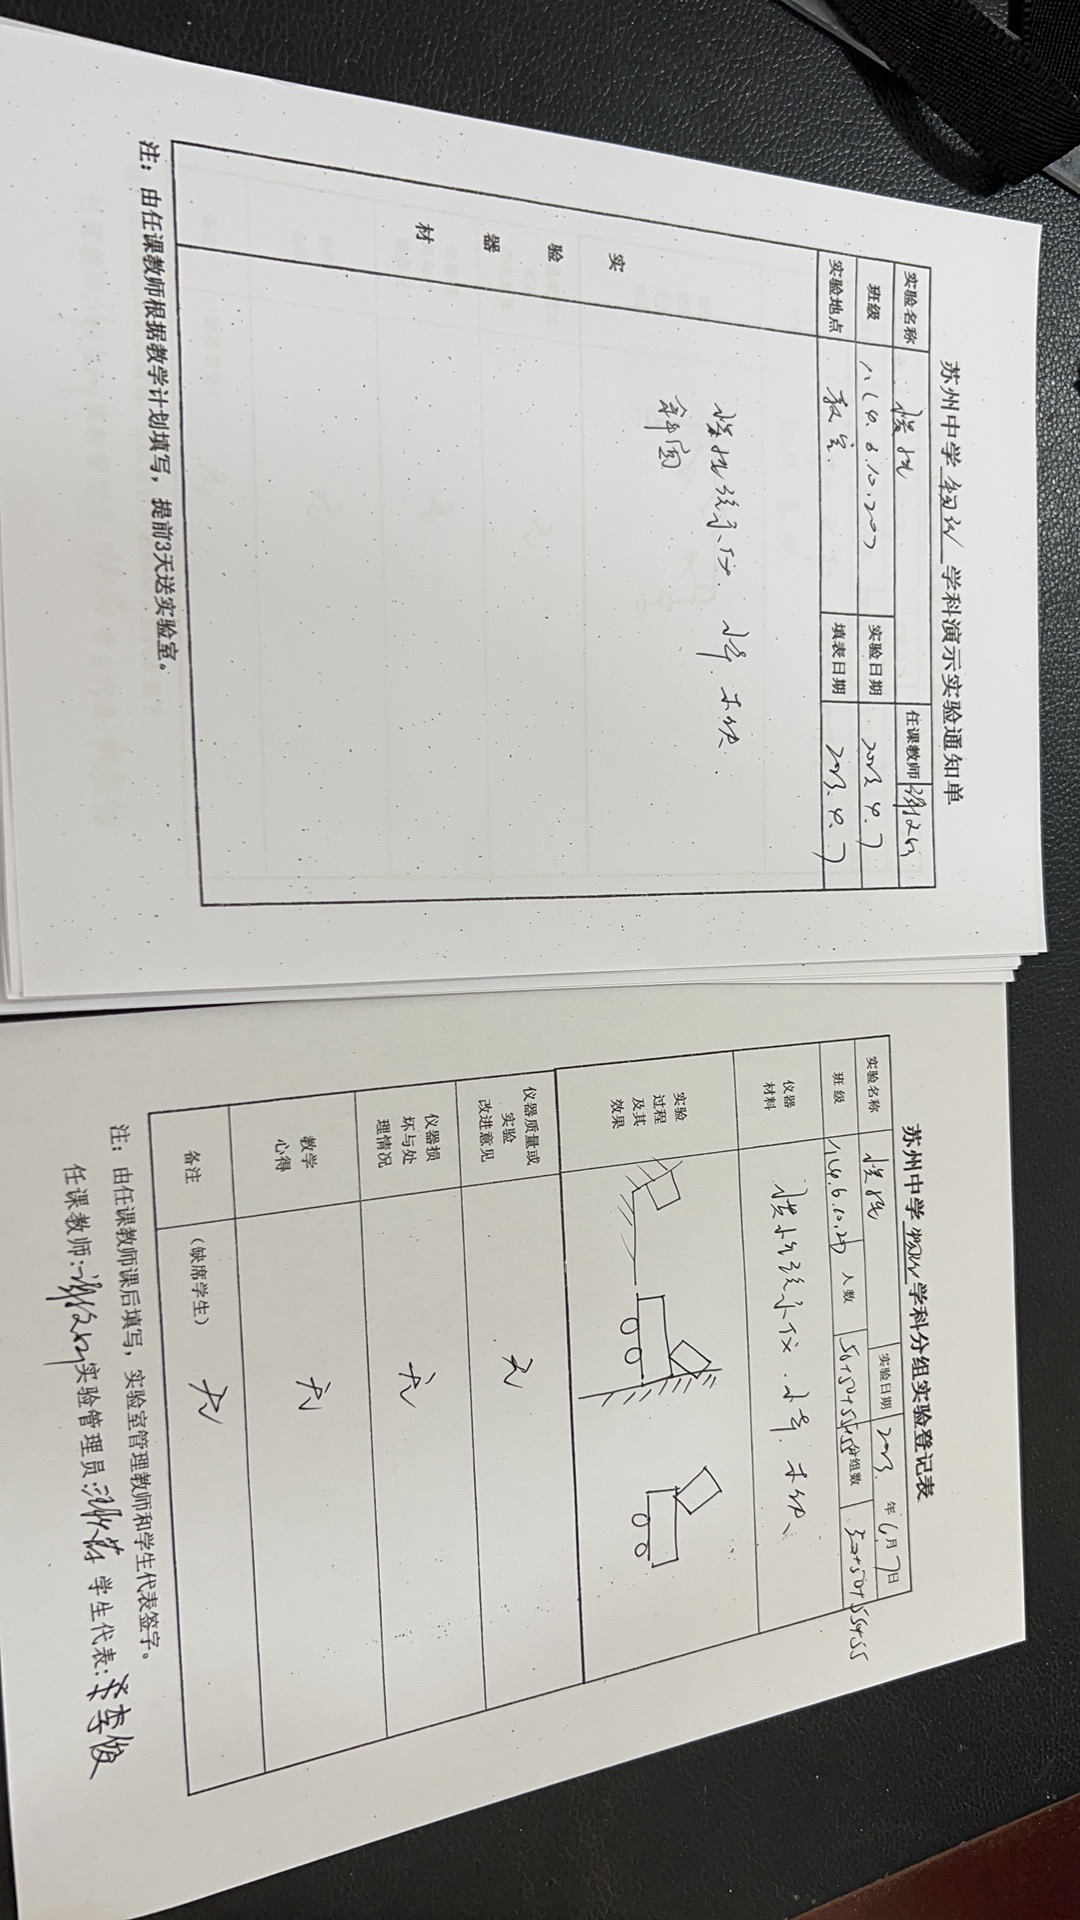 苏州中学 物理 学科演示实验通知单
实验名称 惯性 任课教师
班级 八(4.6.10. 实验日期 2023.4.7
实验地点 教室 填表日期 2023.4.7
实验器材
惯性演示仪. 小车. 木块
注：由任课教师根据教学计划填写，提前3天送实验室。
苏州中学 物理 学科分组实验登记表
实验名称 惯性 实验日期 2023. 年 6月 7日
班级 八(4.6.10. 人数 50+50+55+55 分组数 50+50+55+55
仪器材料 惯性演示仪. 小车. 木块
实验过程及其效果
仪器质量或实验改进意见 无
仪器损坏与处理情况 无
教学心得 无
备注 （缺席学生） 无
注：由任课教师课后填写，实验室管理教师和学生代表签字。
任课教师: 实验管理员: 学生代表: